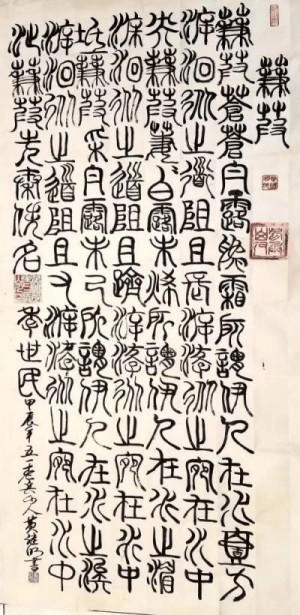 蒹葭
蒹葭蒼蒼白露為霜所謂伊人在水壹方
溯洄從之道阻且長溯游從之宛在水中
央蒹葭萋白露未晞所謂伊人在水之湄
溯洄從之道阻且躋溯游從之宛在水中
坻蒹葭采白露未已所謂伊人在水之涘
溯洄從之道阻且右溯游從之宛在水中
沚蒹葭先秦佚名
世民
甲辰年五一
人黄
書